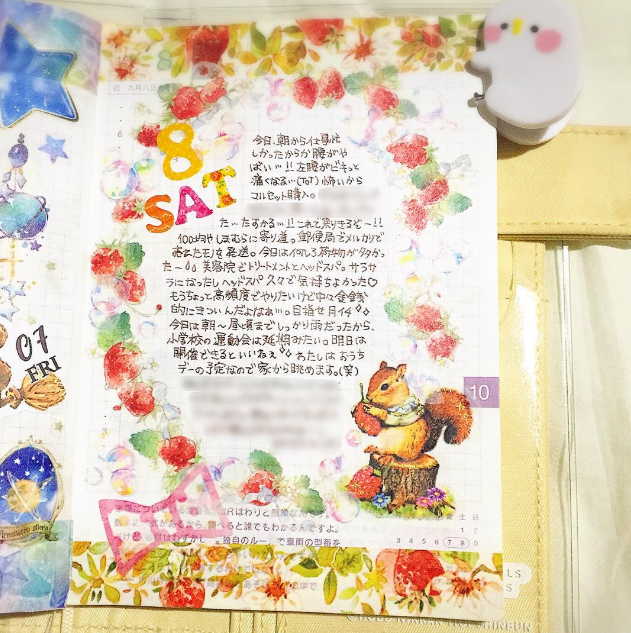 旧 九月八日
8
SAT
今日、朝から仕事忙
しかったからか腰がや
ばい…!! 左腰がピキッと
痛くなる…(ToT) 怖いから
コルセット購入。
たすかる…!! これで乗りきるぞー!!
100均やしまむらに寄り道。郵便局でメルカリで
売れたモノを発送。今日は何しろ荷物が多かっ
た〜 美容院でトリートメントとヘッドスパ。サラサ
ラになったしヘッドスパ久々で気持ちよかった♡
もうちょっと高頻度でやりたいけど中々金銭
的にキツいんだよなぁ…。目指せ月イチ
今日は朝〜昼頃までしっかり雨だったから、
小学校の運動会は延期みたい。明日は
開催できるといいねぇ わたしはおうち
デーの予定なので家から眺めます。(笑)
07
FRI
10
JRはわりと簡単な
式があるから べると誰でもわかるんですよ。
独自のルー で車両の型番を
土 日
1 2
3 4 5 6 7 8 9